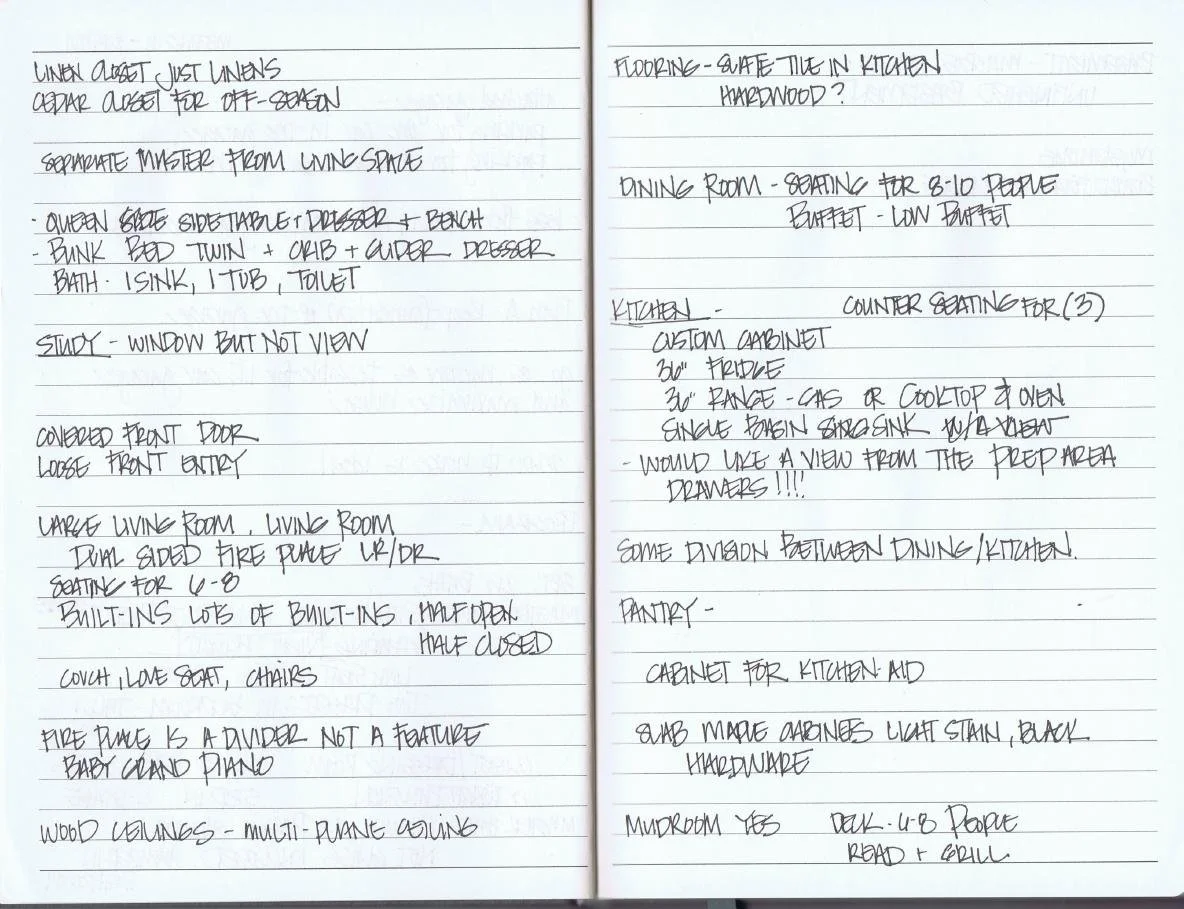 LINEN CLOSET, JUST LINENS
CEDAR CLOSET FOR OFF-SEASON
SEPARATE MASTER FROM LIVING SPACE
- QUEEN SIDE TABLE + DRESSER + BENCH
- BUNK BED TWIN + CRIB + GLIDER DRESSER
BATH - 1 SINK, 1 TUB, TOILET
STUDY - WINDOW BUT NOT VIEW
COVERED FRONT DOOR
LOOSE FRONT ENTRY
LARGE LIVING ROOM, LIVING ROOM
DUAL SIDED FIRE PLACE LR/DR
SEATING FOR 6-8
BUILT-INS LOTS OF BUILT-INS, HALF OPEN
HALF CLOSED
COUCH, LOVE SEAT, CHAIRS
FIRE PLACE IS A DIVIDER NOT A FEATURE
BABY GRAND PIANO
WOOD CEILINGS - MULTI-PLANE CEILING
FLOORING - SLATE TILE IN KITCHEN
HARDWOOD?
DINING ROOM - SEATING FOR 8-10 PEOPLE
BUFFET - LOW BUFFET
KITCHEN - COUNTER SEATING FOR (3)
CUSTOM CABINET
36" FRIDGE
36" RANGE - GAS OR COOKTOP & OVEN
SINGLE BASIN SINK
- WOULD LIKE A VIEW FROM THE PREP AREA
DRAWERS!!!!
SOME DIVISION BETWEEN DINING/KITCHEN.
PANTRY -
CABINET FOR KITCHEN-AID
SLAB MAPLE CABINETS LIGHT STAIN, BLACK
HARDWARE
MUDROOM YES DECK - 4-8 PEOPLE
READ + GRILL